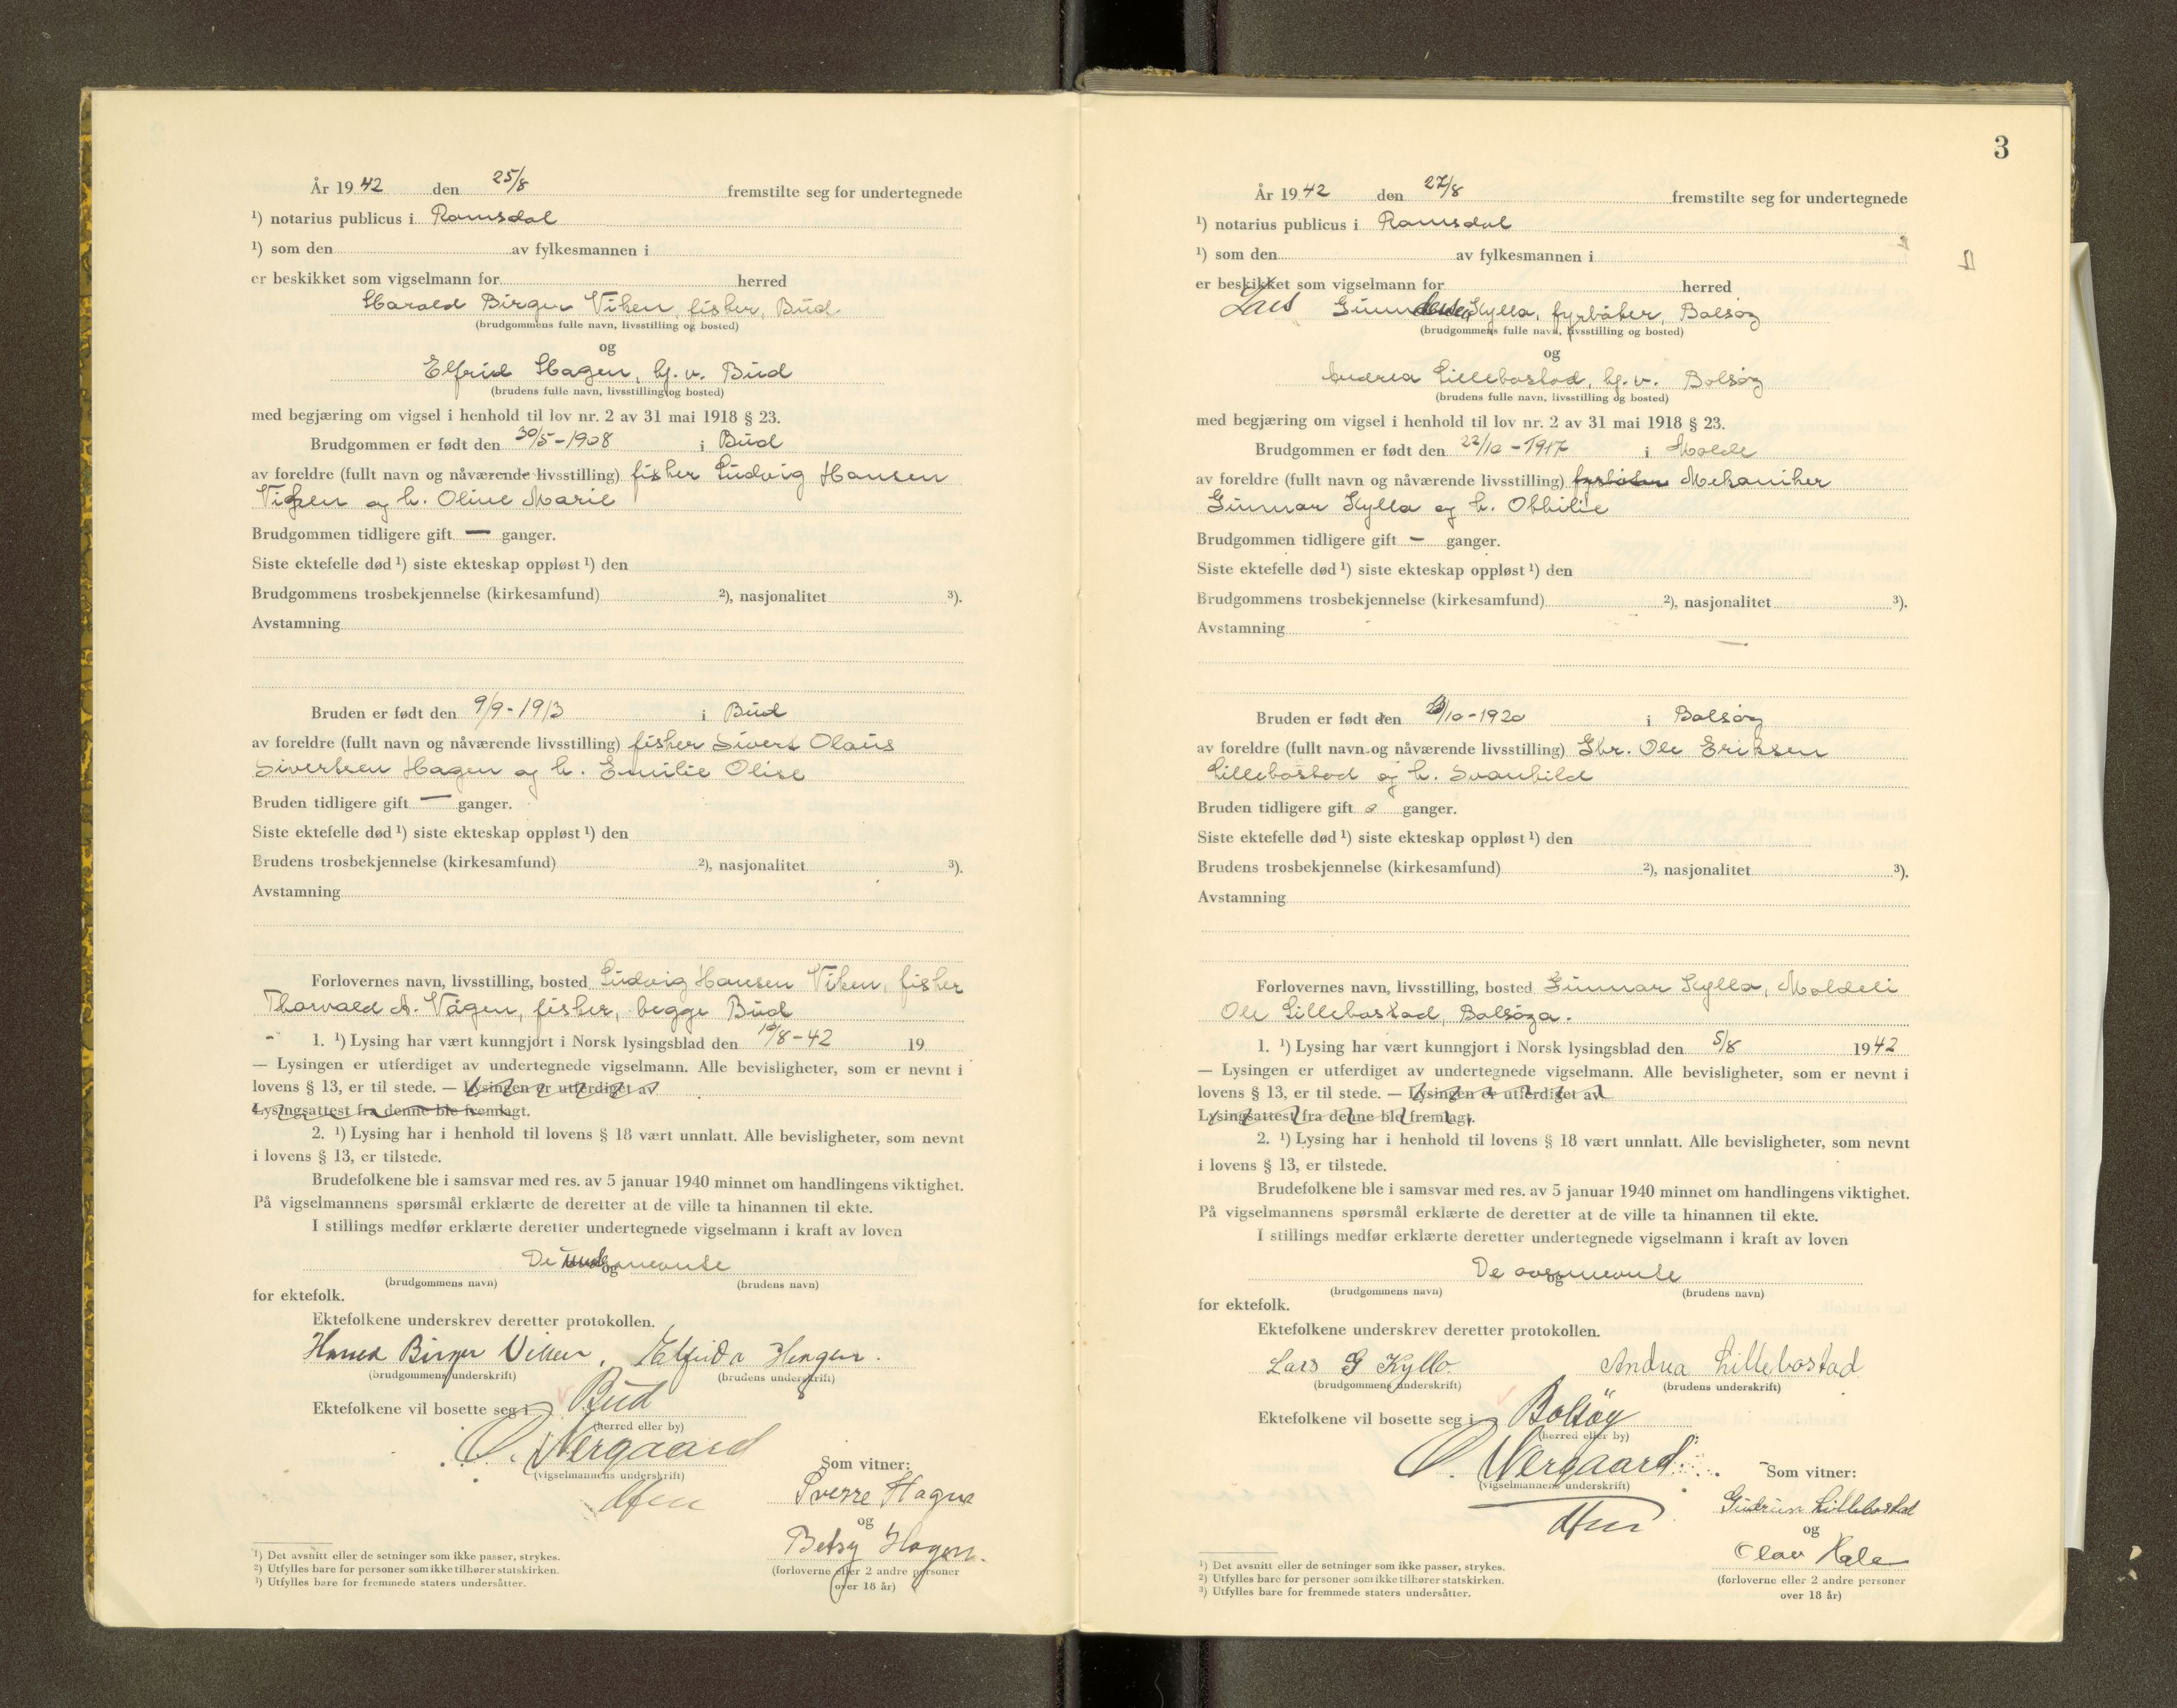 År 19 42 den 25/8 fremstilte seg for undertegnede
¹) notarius publicus i Romsdal
¹) som den av fylkesmannen i
er beskikket som vigselmann for herred
Harald Birger Viken, fisker, Bud
(brudgommens fulle navn, livsstilling og bosted)
og
Elfrid Hagen, hj.v. Bud
(brudens fulle navn, livsstilling og bosted)
med begjæring om vigsel i henhold til lov nr. 2 av 31 mai 1918 § 23.
Brudgommen er født den 30/5-1908 i Bud
av foreldre (fullt navn og nåværende livsstilling) fisker Ludvig Hansen
Viken og h. Oline Marie
Brudgommen tidligere gift — ganger.
Siste ektefelle død ¹) siste ekteskap oppløst ¹) den
Brudgommens trosbekjennelse (kirkesamfund) ²), nasjonalitet ³).
Avstamning
Bruden er født den 9/9-1913 i Bud
av foreldre (fullt navn og nåværende livsstilling) fisker Sivert Olaus
Sivertsen Hagen og h. Emilie Olise
Bruden tidligere gift — ganger.
Siste ektefelle død ¹) siste ekteskap oppløst ¹) den
Brudens trosbekjennelse (kirkesamfund) ²), nasjonalitet ³).
Avstamning
Forlovernes navn, livsstilling, bosted Ludvig Hansen Viken, fisker
Thorvald A. Vågen, fisker, begge Bud
1. ¹) Lysing har vært kunngjort i Norsk lysingsblad den 10/8-42 19
— Lysingen er utferdiget av undertegnede vigselmann. Alle bevisligheter, som er nevnt i
lovens § 13, er til stede. — Lysingen er utferdiget av
Lysingsattest fra denne ble fremlagt.
2. ¹) Lysing har i henhold til lovens § 18 vært unnlatt. Alle bevisligheter, som nevnt
i lovens § 13, er tilstede.
Brudefolkene ble i samsvar med res. av 5 januar 1940 minnet om handlingens viktighet.
På vigselmannens spørsmål erklærte de deretter at de ville ta hinannen til ekte.
I stillings medfør erklærte deretter undertegnede vigselmann i kraft av loven
De og nevnte
(brudgommens navn) (brudens navn)
for ektefolk.
Ektefolkene underskrev deretter protokollen.
Harald Birger Viken, Elfrida Hagen.
(brudgommens underskrift) (brudens underskrift)
Ektefolkene vil bosette seg i Bud
(herred eller by)
O. Nergaard
(vigselmannens underskrift)
Som vitner:
Sverre Hagen
og
Betsy Hagen.
(forloverne eller 2 andre personer
over 18 år)
¹) Det avsnitt eller de setninger som ikke passer, strykes.
²) Utfylles bare for personer som ikke tilhører statskirken.
³) Utfylles bare for fremmede staters undersåtter.
3
År 19 42 den 27/8 fremstilte seg for undertegnede
¹) notarius publicus i Romsdal
¹) som den av fylkesmannen i
er beskikket som vigselmann for herred
Lars Kyllo, fyrbøter, Bolsøy
(brudgommens fulle navn, livsstilling og bosted)
og
Andrea Lillebostad, hj.v. Bolsøy
(brudens fulle navn, livsstilling og bosted)
med begjæring om vigsel i henhold til lov nr. 2 av 31 mai 1918 § 23.
Brudgommen er født den 22/10-1917 i Molde
av foreldre (fullt navn og nåværende livsstilling) fyrbøter Mekaniker
Gunnar Kyllo og h. Othilie
Brudgommen tidligere gift — ganger.
Siste ektefelle død ¹) siste ekteskap oppløst ¹) den
Brudgommens trosbekjennelse (kirkesamfund) ²), nasjonalitet ³).
Avstamning
Bruden er født den /10-1920 i Bolsøy
av foreldre (fullt navn og nåværende livsstilling) Gbr. Ole Eriksen
Lillebostad og h. Svanhild
Bruden tidligere gift 0 ganger.
Siste ektefelle død ¹) siste ekteskap oppløst ¹) den
Brudens trosbekjennelse (kirkesamfund) ²), nasjonalitet ³).
Avstamning
Forlovernes navn, livsstilling, bosted Gunnar Kyllo, Moldeli
Ole Lillebostad, Bolsøya.
1. ¹) Lysing har vært kunngjort i Norsk lysingsblad den 5/8 1942
— Lysingen er utferdiget av undertegnede vigselmann. Alle bevisligheter, som er nevnt i
lovens § 13, er til stede. — Lysingen er utferdiget av
Lysingsattest fra denne ble fremlagt.
2. ¹) Lysing har i henhold til lovens § 18 vært unnlatt. Alle bevisligheter, som nevnt
i lovens § 13, er tilstede.
Brudefolkene ble i samsvar med res. av 5 januar 1940 minnet om handlingens viktighet.
På vigselmannens spørsmål erklærte de deretter at de ville ta hinannen til ekte.
I stillings medfør erklærte deretter undertegnede vigselmann i kraft av loven
De ovennevnte
og
(brudgommens navn) (brudens navn)
for ektefolk.
Ektefolkene underskrev deretter protokollen.
Lars G Kyllo. Andrea Lillebostad
(brudgommens underskrift) (brudens underskrift)
Ektefolkene vil bosette seg i Bolsöy
(herred eller by)
O. Nergaard
(vigselmannens underskrift)
Som vitner:
Gudrun Lillebostad
og
Olav Hale
(forloverne eller 2 andre personer
over 18 år)
¹) Det avsnitt eller de setninger som ikke passer, strykes.
²) Utfylles bare for personer som ikke tilhører statskirken.
³) Utfylles bare for fremmede staters undersåtter.